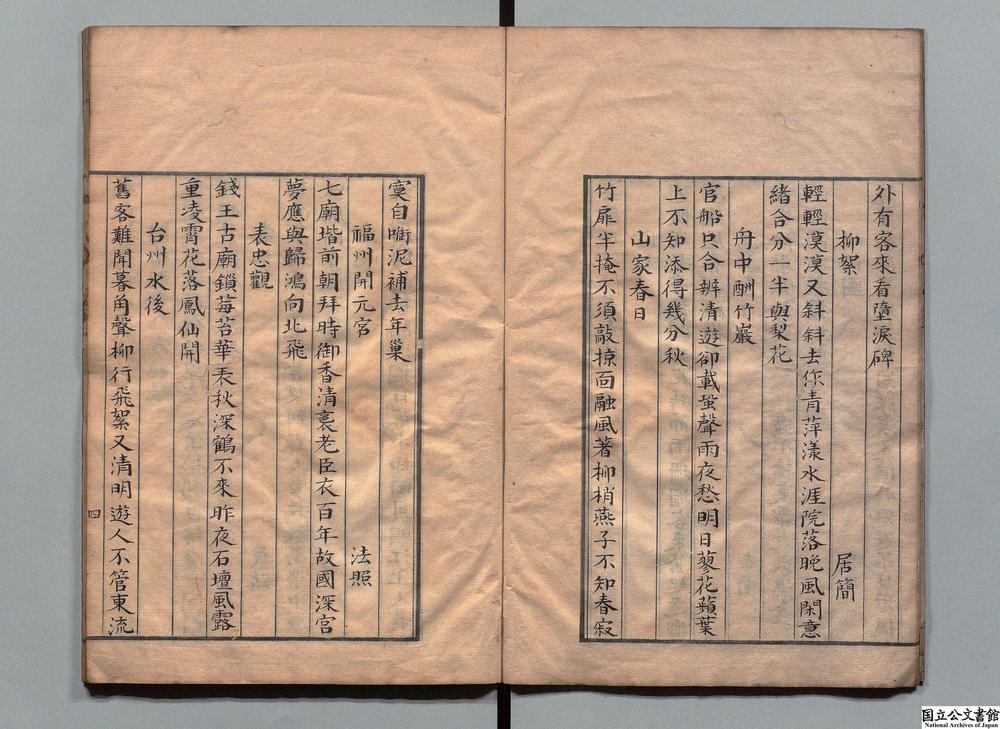 外有客來看墮淚碑
柳絮 居簡
輕輕漠漠又斜斜去作青萍漾水涯院落晚風閑意
緒合分一半與梨花
舟中酬竹巖
官船只合辨清遊卻載蛩聲雨夜愁明日蓼花蘋葉
上不知添得幾分秋
山家春日
竹扉半掩不須敲掠面融風著柳梢燕子不知春寂
寞自啣泥補去年巢
福州開元宮 法照
七廟堦前朝拜時御香清裛老臣衣百年故國深宮
夢應與歸鴻向北飛
表忠觀
錢王古廟鎖莓苔華表秋深鶴不來昨夜石壇風露
重凌霄花落鳳仙開
台州水後
舊客難聞暮角聲柳行飛絮又清明遊人不管東流
四
国立公文書館
National Archives of Japan